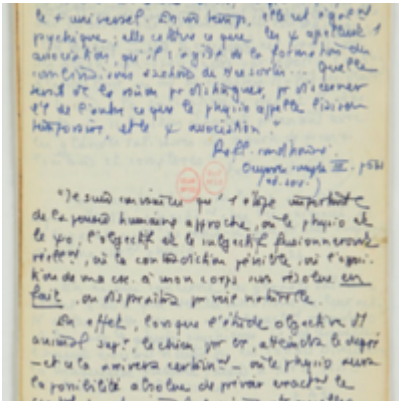 le + universel. En m temps, elle est égalᵗ
psychique ; elle est ce que les ψ appellent 1
association, qu'il s'agisse de la formation de
combinaisons de ressorts... Quelle
serait de la raison pr distinguer, pr discerner
l'1 de l'autre ce que le physio appelle liaison
temporaire, et le ψ association "
Refl. conditionné.
Oeuvre compl III. p561
"Je suis convaincu qu'1 étape importante
de la pensée humaine approche, où le physio et
le ψo, l'objectif et le subjectif fusionneront
réellᵗ, où la contradiction pénible, où l'oppo-
sition de ma csc. à mon corps sera résolue en
fait, ou disparaîtra par voie naturelle.
En effet, lorsque l'étude objective d'1
animal sup!, le chien par ex, atteindra le degré
– et cela arrivera certainᵗ – où le physio aura
la possibilité absolue de prévoir exactᵗ le